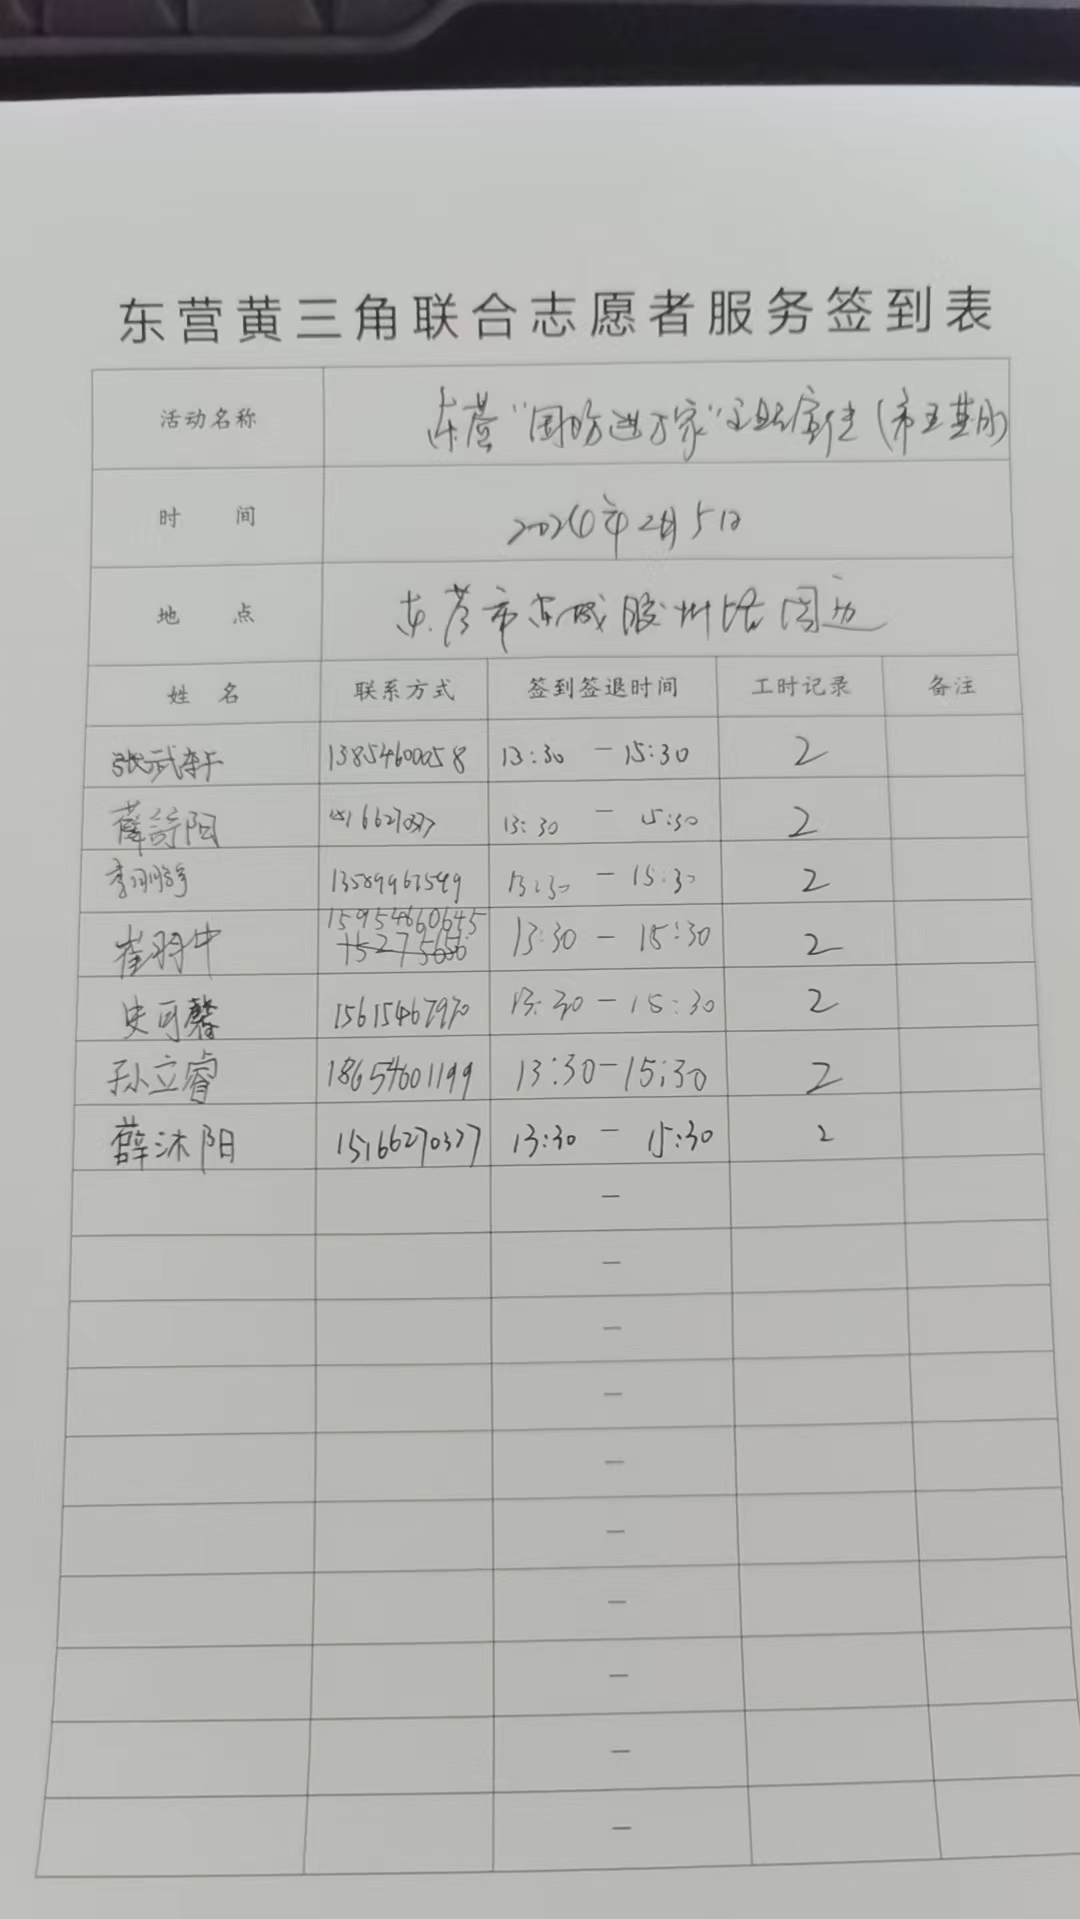 东营黄三角联合志愿者服务签到表
活动名称 东营“国防进万家”主题宣传
时 间 2024年2月5日
地 点 东营市东城胶州路周边
姓 名 联系方式 签到签退时间 工时记录 备注
张武轩 13854600058 13:30 — 15:30 2
薛诗阳 13:30 — 15:30 2
13589967549 13:30 — 15:30 2
15954660645
崔羽中 13:30 — 15:30 2
史可馨 15615467970 13:30 — 15:30 2
孙立睿 18654601199 13:30 — 15:30 2
薛沐阳 15166270327 13:30 — 15:30 2
—
—
—
—
—
—
—
—
—
—